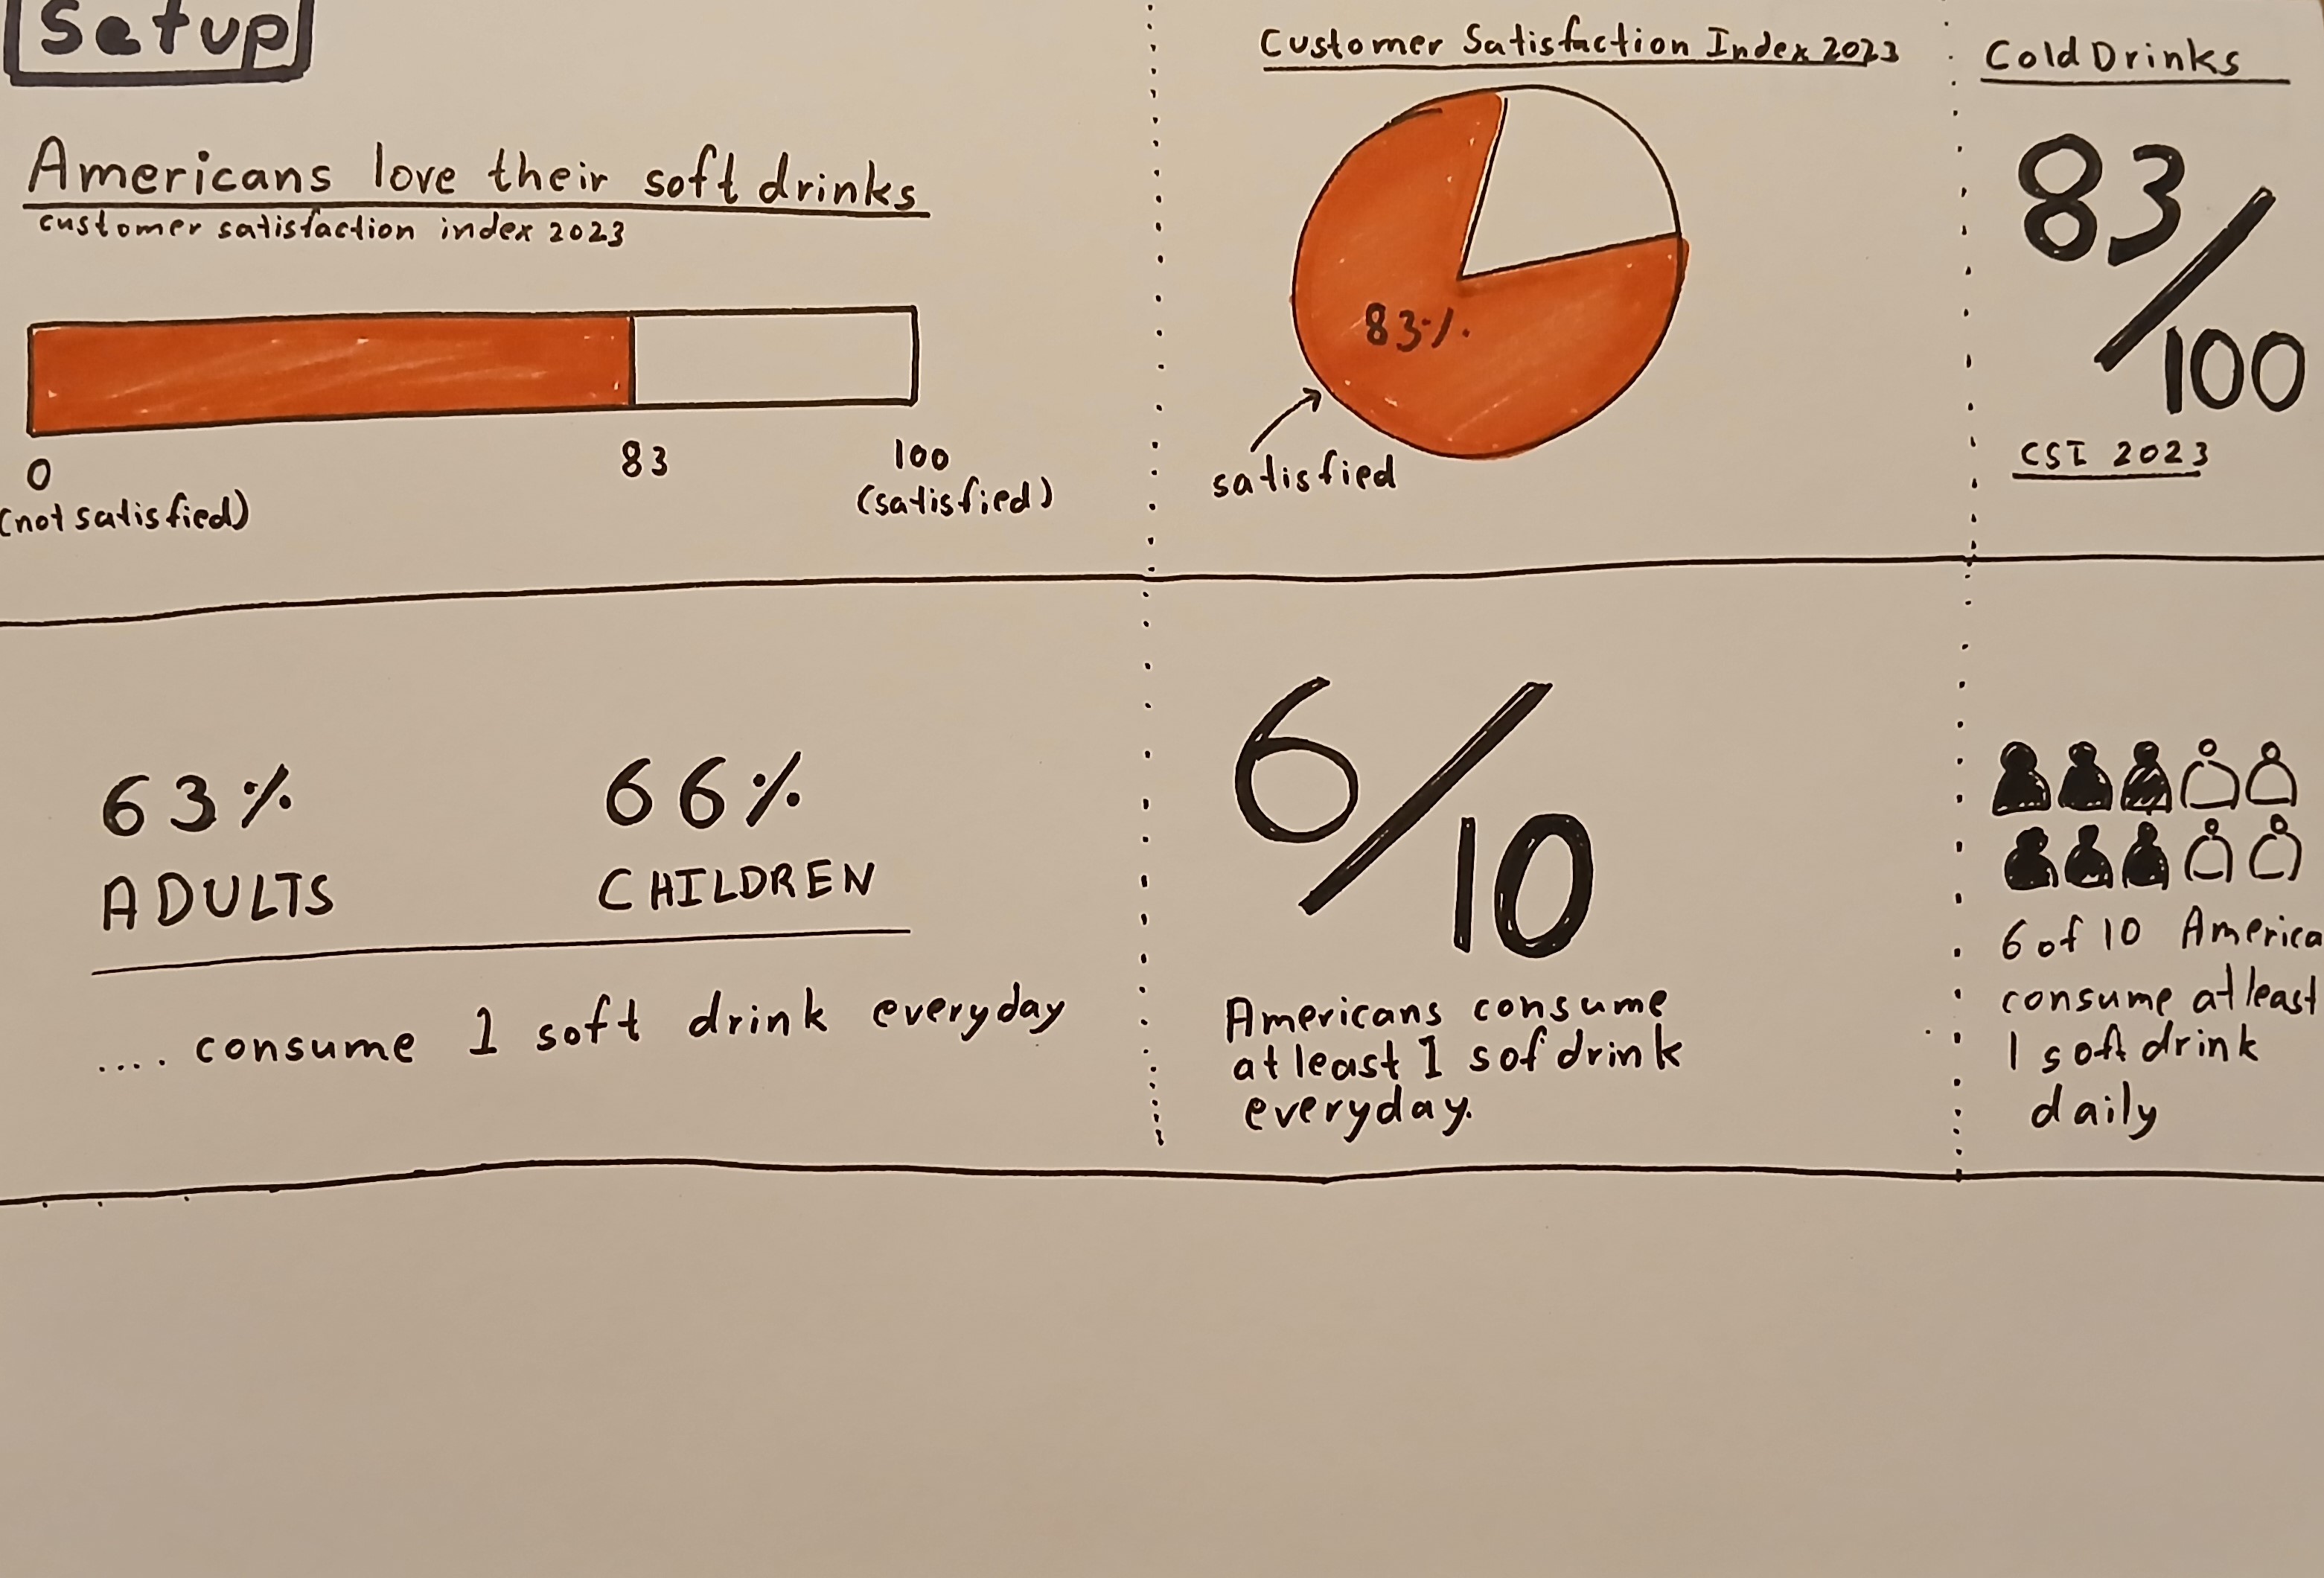 Setup
Americans love their soft drinks
customer satisfaction index 2023
0
(not satisfied)
83
100
(satisfied)
Customer Satisfaction Index 2023
83%
satisfied
Cold Drinks
83/100
CSI 2023
63%
ADULTS
66%
CHILDREN
.... consume 1 soft drink everyday
6/10
Americans consume
at least 1 sof drink
everyday.
6 of 10 America
consume at least
1 soft drink
daily